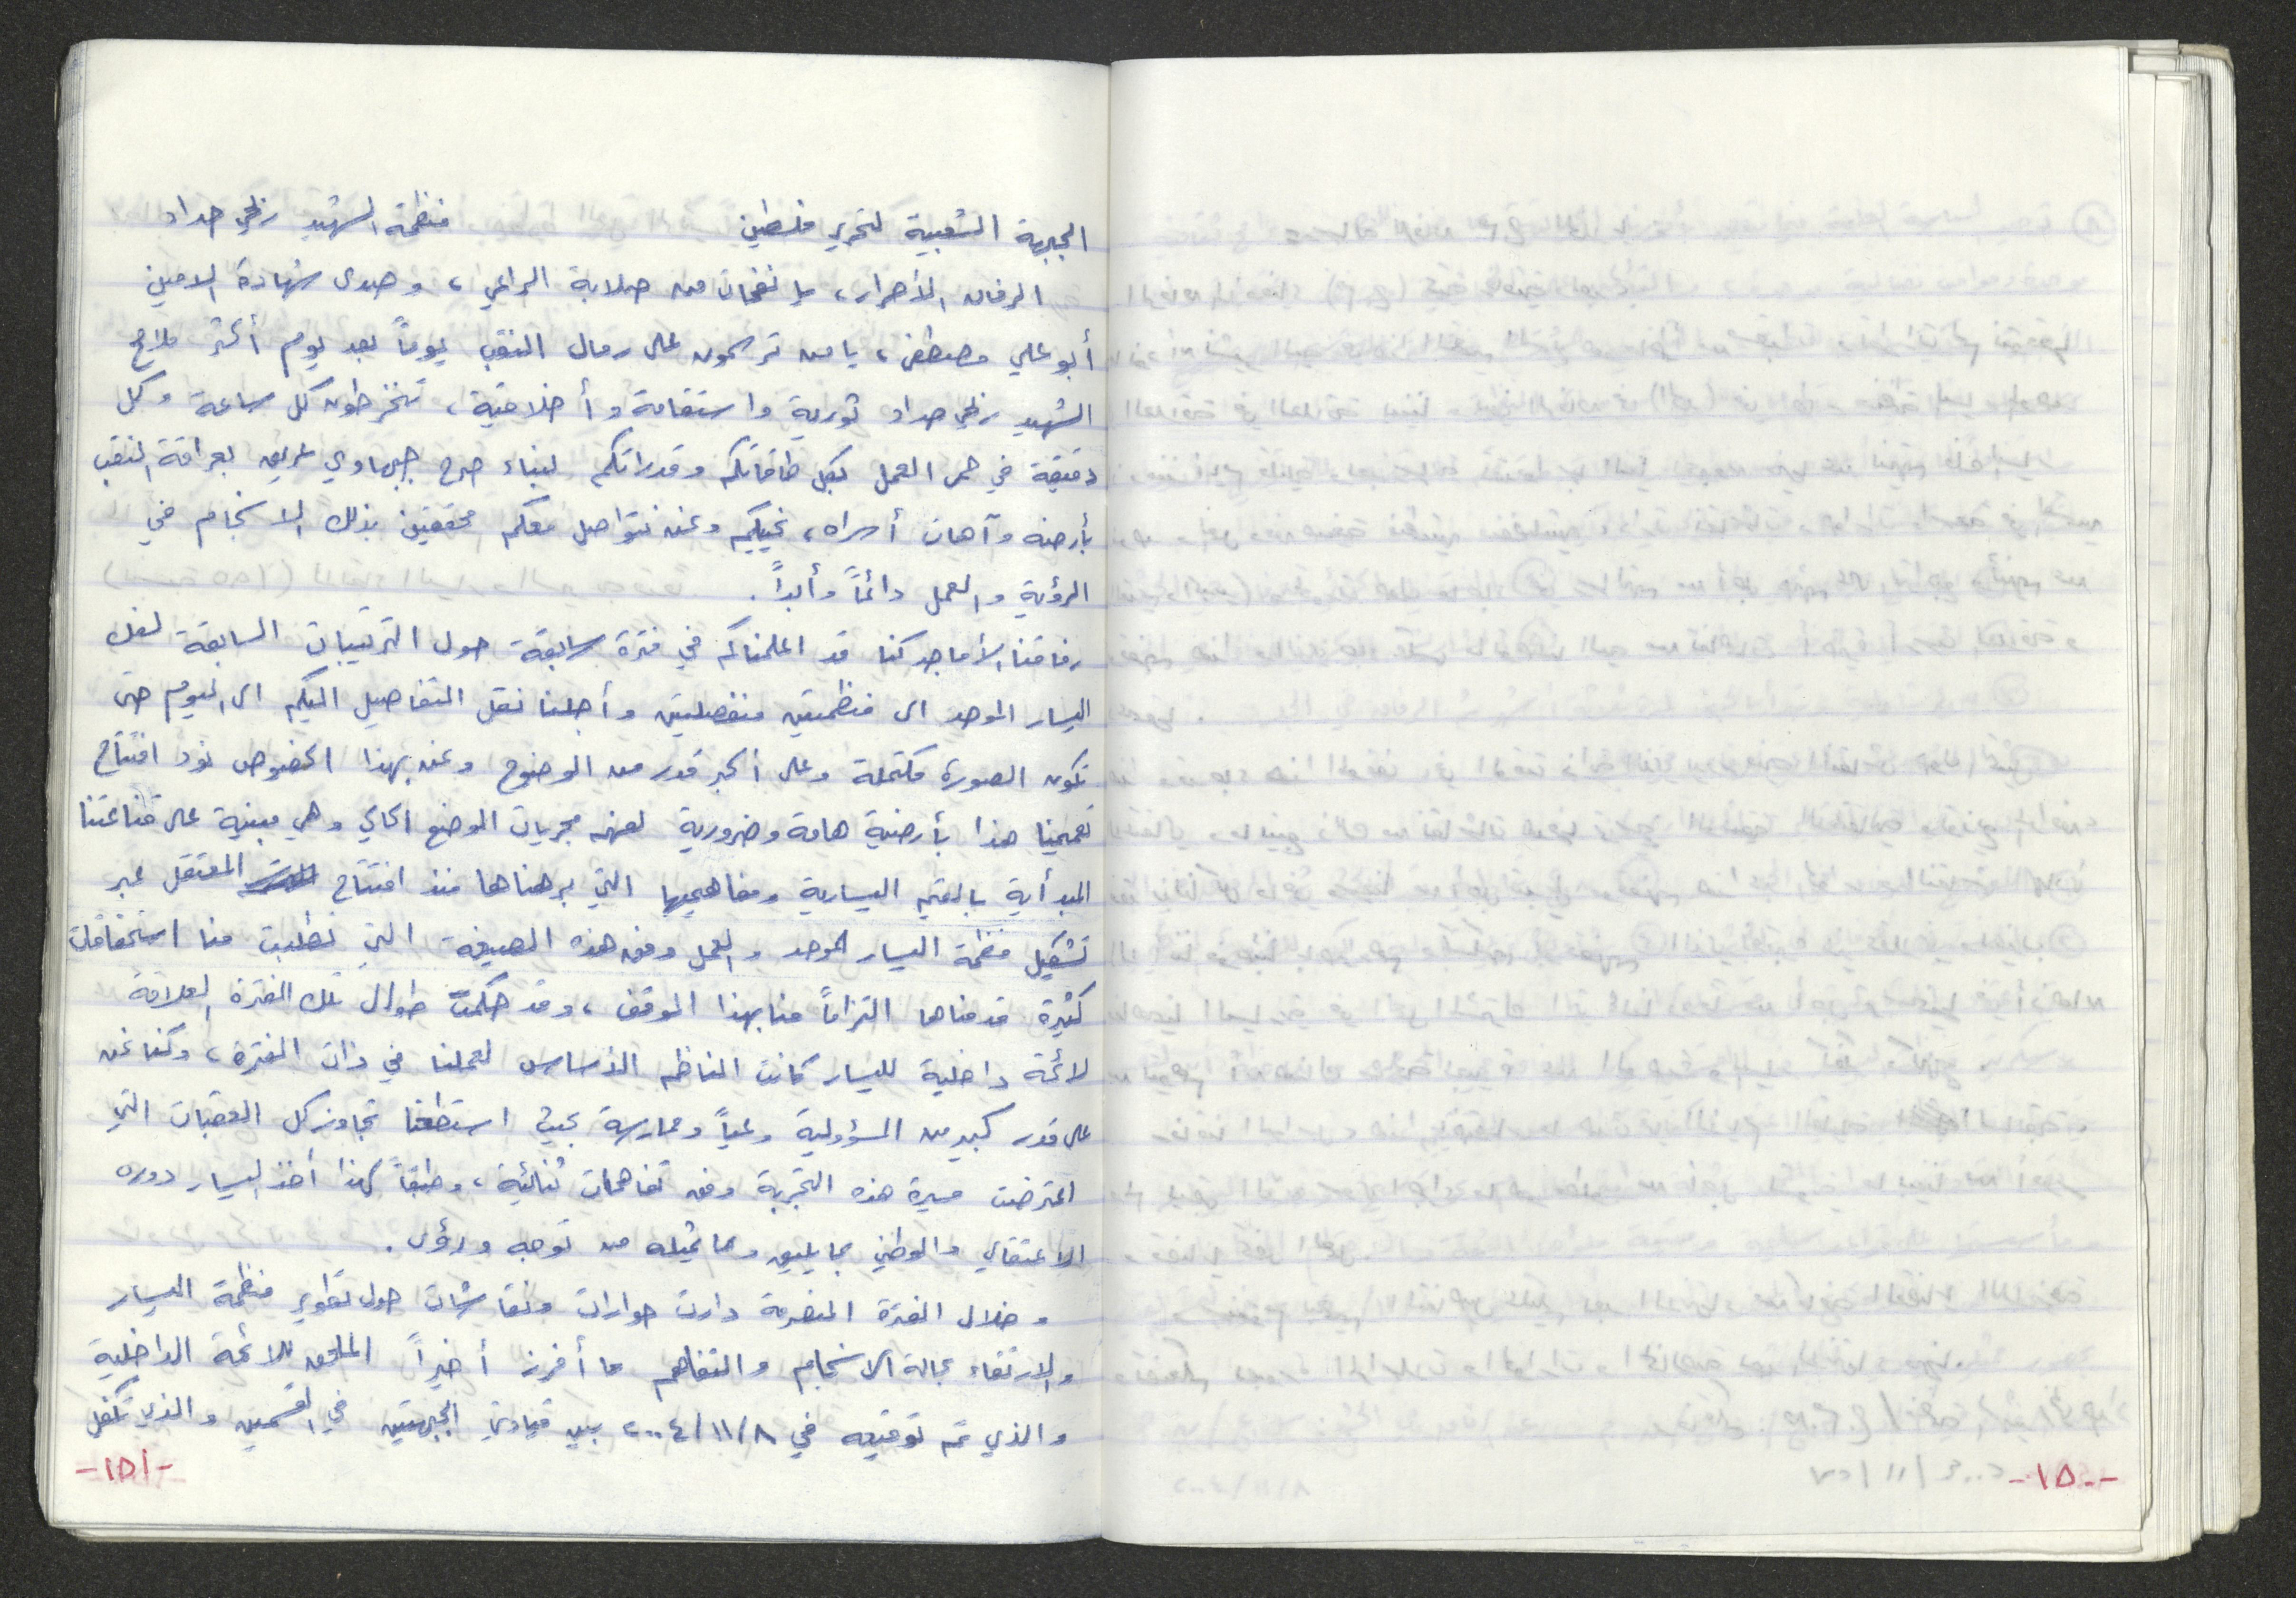 الجبهة الشعبية لتحرير فلسطين منظمة الشهيد ربحي حداد
الرفاق الأحرار، يا نفحات من صلابة الراعي، وصدى شهادة الامين
أبو علي مصطفى، يا من ترسمون على رمال النقب يوماً بعد يوم أكثر ملامح
الشهيد ربحي حداد ثورية واستقامة وأخلاقية، تنخرطون كل ساعة وكل
دقيقة في حمى العمل بكل طاقاتكم وقدراتكم لبناء صرح جبهاوي عريق بعراقة النقب
بأرضه وآهات أسراه، نحييكم ونحن نتواصل معكم محققين بذلك الانسجام في
الرؤية والعمل دائماً وأبداً.
رفاقنا الأماجد كنا قد اعلمناكم في فترة سابقة حول الترتيبات السابقة لفك
اليسار الموحد الى منظمتين منفصلتين وأجلنا نقل التفاصيل اليكم الى اليوم حتى
تكون الصورة مكتملة وعلى أكبر قدر من الوضوح ونحن بهذا الخصوص نود افتتاح
تعميمنا هذا بأرضية هامة وضرورية لفهم مجريات الوضع الحالي وهي مبنية على قناعتنا
المبدأية بالقيم اليسارية ومفاهيمها التي برهناها منذ افتتاح المعتقل عبر
تشكيل منظمة اليسار الموحد والعمل وفق هذه الصيغة التي تطلبت منا استحقاقات
كثيرة قدمناها التزاماً منا بهذا الموقف، وقد حكمت طوال تلك الفترة العلاقة
لائحة داخلية لليسار كانت الناظم الأساس لعملنا في ذات الفترة، وكنا نحن
على قدر كبير من المسؤولية وعياً وممارسة بحيث استطعنا تجاوز كل العقبات التي
اعترضت مسيرة هذه التجربة وفق تفاهمات ثنائية، وطبقاً لهذا أخذ اليسار دوره
الاعتقالي والوطني بما يليق وما يمثله من توجه ورؤى.
وخلال الفترة المنصرمة دارت حوارات ونقاشات حول تطوير منظمة اليسار
والارتقاء بحالة الانسجام والتفاهم ما أفرز أخيراً الملحق للائحة الداخلية
والذي تم توقيعه في ٨/١١/٢٠٠٤ بين قيادتي الجبهتين في القسمين والذي تكفل
-١٥١-
-١٥٠-